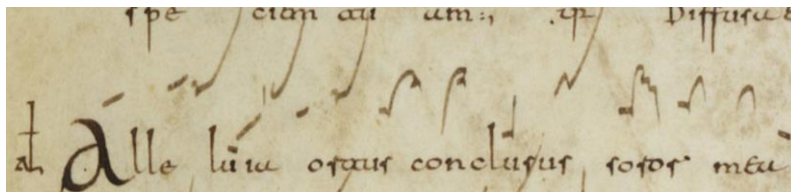 spe ciem tu am:, Diffusa
al Alle luia ortus conclusus soror mea